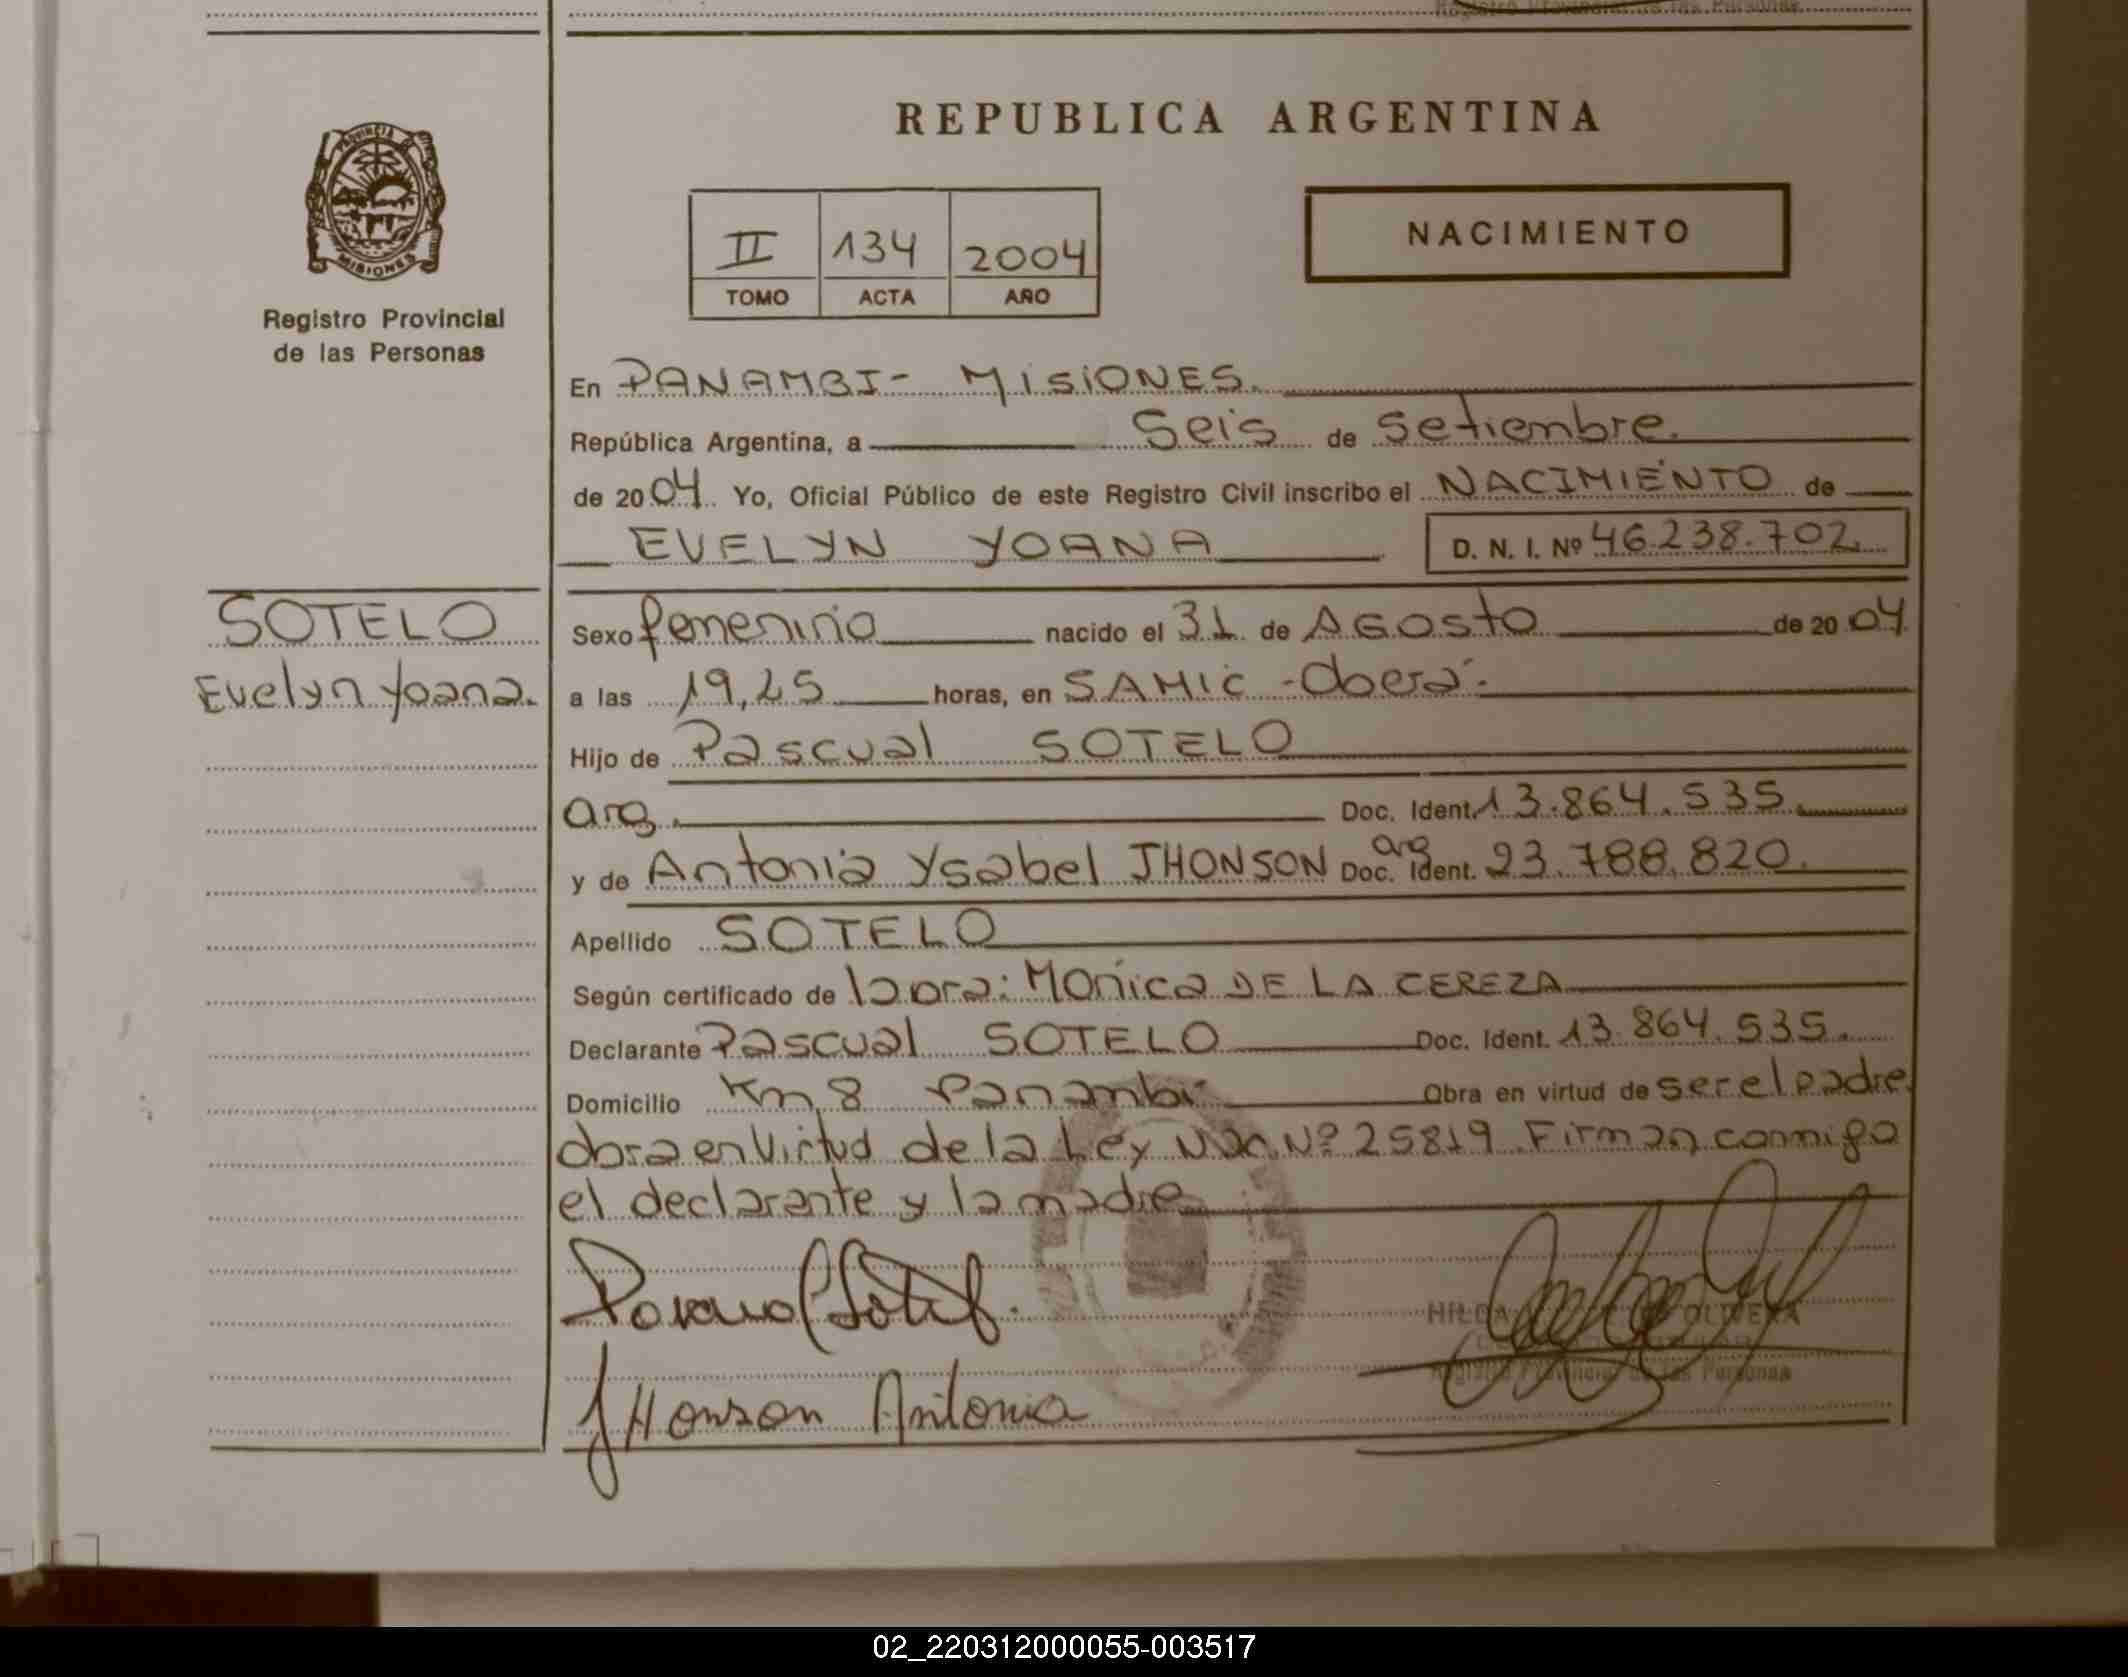 Registro Provincial de las Personas
REPUBLICA ARGENTINA
PROVINCIA
MISIONES
Registro Provincial
de las Personas
II 134 2004
TOMO ACTA AÑO
NACIMIENTO
En PANAMBI - MISIONES.
República Argentina, a Seis de Setiembre.
de 2004. Yo, Oficial Público de este Registro Civil inscribo el NACIMIENTO de
EVELYN YOANA D. N. I. Nº 46.238.702.
SOTELO
Evelyn Yoana.
Sexo femenino nacido el 31 de AGOSTO de 2004.
a las 19,25 horas, en SAMIC - Oberá.
Hijo de Pascual SOTELO
arg. Doc. Ident. 13.864.535.
y de Antonia Ysabel JHONSON arg Doc. Ident. 23.788.820.
Apellido SOTELO
Según certificado de la Dra: Monica DE LA CEREZA
Declarante Pascual SOTELO Doc. Ident. 13.864.535.
Domicilio Km, 8 Panambi Obra en virtud de ser el padre.
obra en Virtud de la Ley Nac. Nº 25819. Firman conmigo
el declarante y la madre
Pascual Sotelo.
JHonson Antonia
HILDA OLIVERA
Registro Provincial de las Personas
02_220312000055-003517